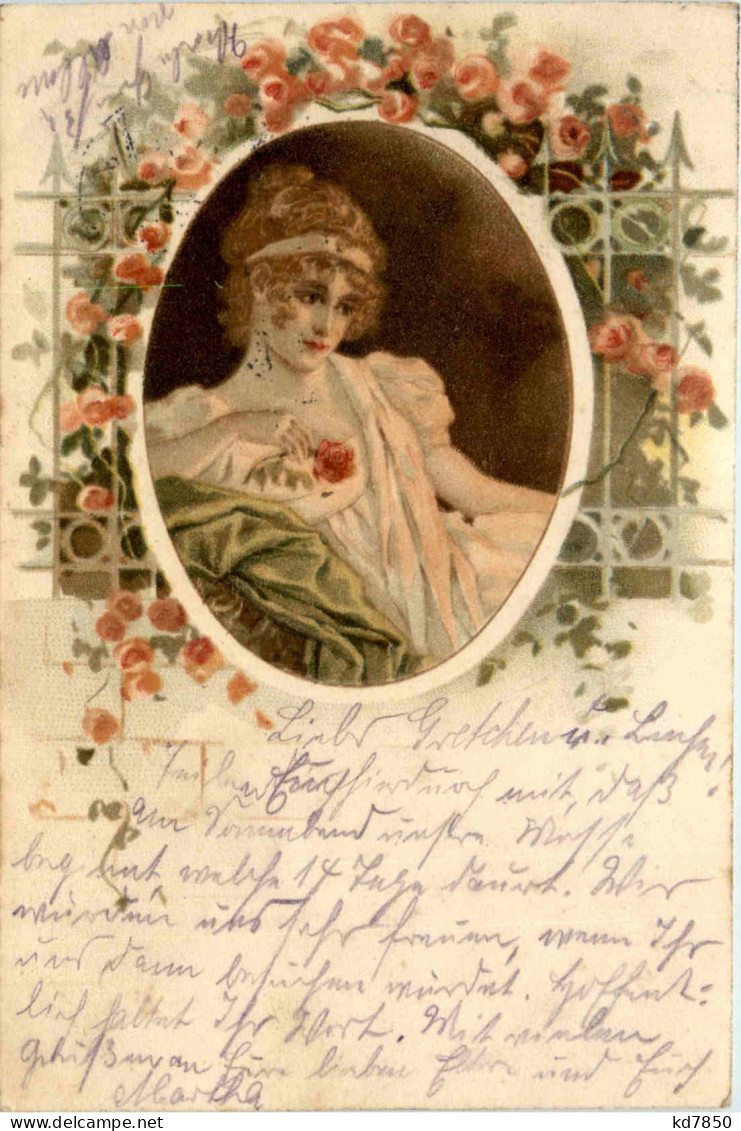 Liebe Gretchen u.
Teilen Euch hierdurch mit, daß
am Sonnabend unsre Messe
beginnt, welche 14 Tage dauert. Wir
würden uns sehr freuen, wenn Ihr
uns dann besuchen würdet. Hoffent-
lich haltet Ihr Wort. Mit vielen
Grüßen an Eure lieben Eltern und Euch
Martha
kd7850